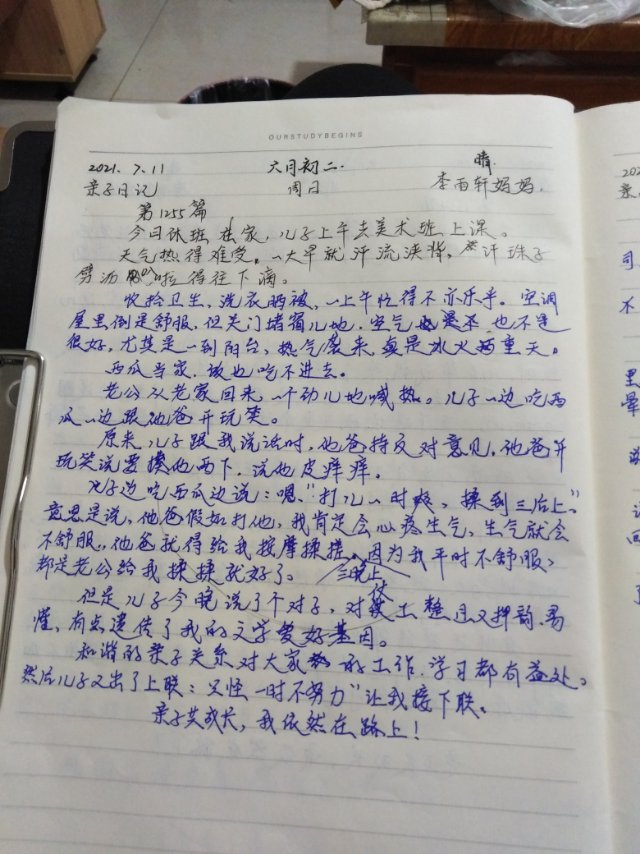 OURSTUDYBEGINS
2021. 7. 11 六月初二. 晴
亲子日记 周日 李雨轩妈妈.
第1255篇
今日休班在家,儿子上午去美术班上课。
天气热得难受。一大早就汗流浃背,汗珠子
劈沥啪啦得往下滴。
收拾卫生,洗衣晒被,一上午忙得不亦乐乎。空调
屋里倒是舒服,但关门堵窗儿地,空气也不是
很好,尤其是一到阳台,热气袭来,真是冰火两重天。
西瓜当家,饭也吃不进去。
老公从老家回来,一个劲儿地喊热。儿子一边吃西
瓜一边跟他爸开玩笑。
原来儿子跟我说话时,他爸持反对意见。他爸开
玩笑说要揍他两下,说他皮痒痒。
儿子边吃西瓜边说:嗯,“打儿一时爽,揉到三后上”。
意思是说,他爸假如打他,我肯定会心疼生气,生气就会
不舒服,他爸就得给我按摩揉搓,因为我平时不舒服,
都是老公给我揉揉就好了。 三晚上
但是儿子今晚说了个对子,对仗工整且又押韵,易
懂,有点遗传了我的文学爱好基因。
和谐的亲子关系对大家的工作,学习都有益处。
然后儿子又出了上联:又怪一时不努力”让我接下联。
亲子共成长,我依然在路上!